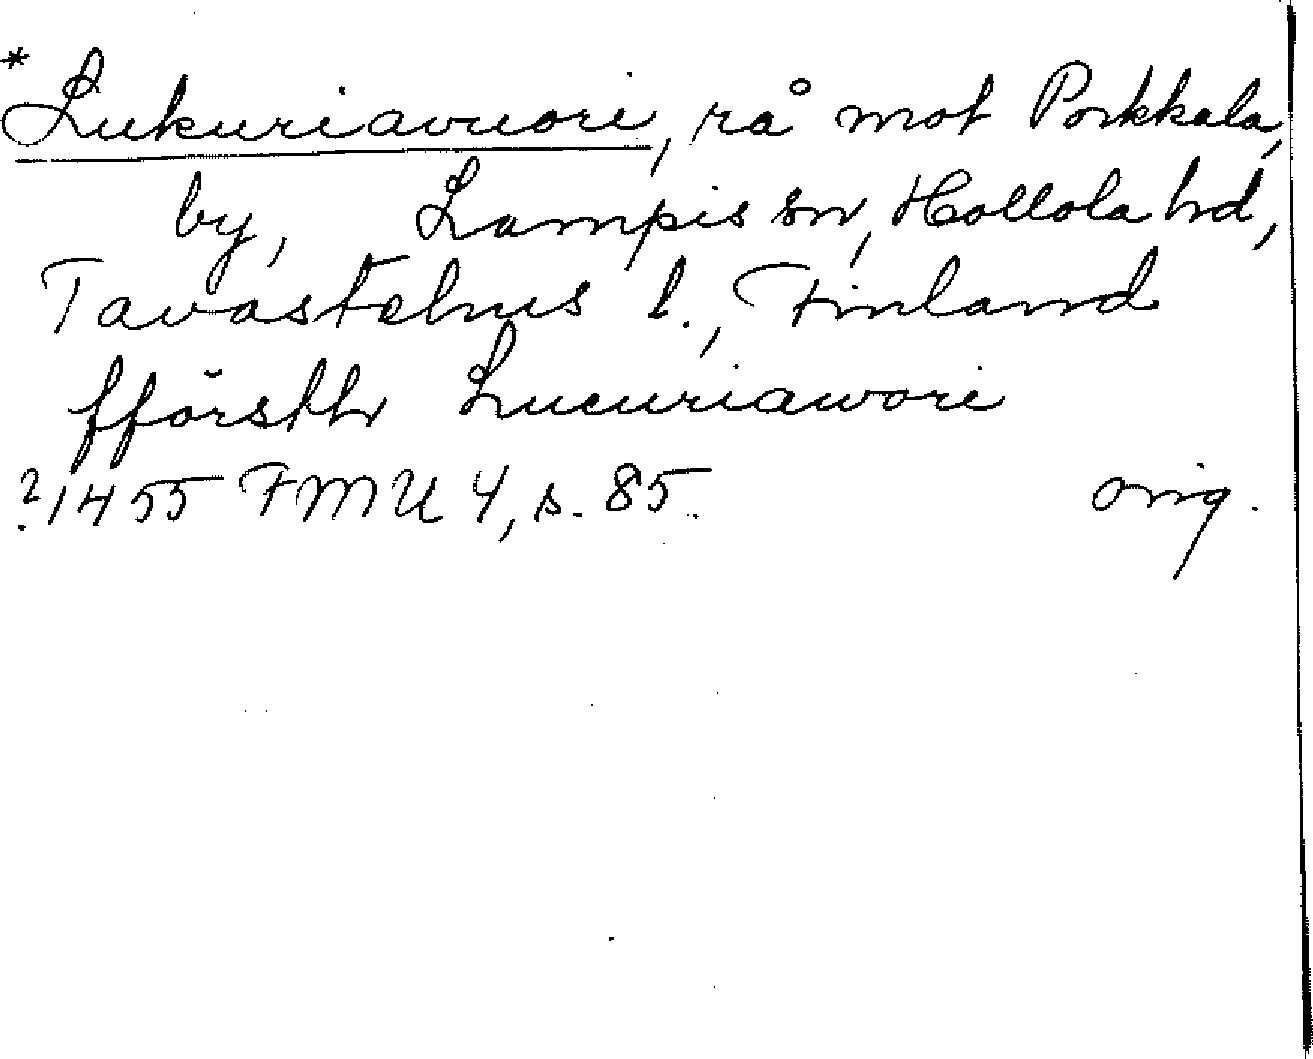 *Lukuriavuori, rå mot Porkkala,
by, Lampis sn, Hollola hd,
Tavastehus l., Finland
Lucuriawori
?1455 FMU 4, s. 85. orig.